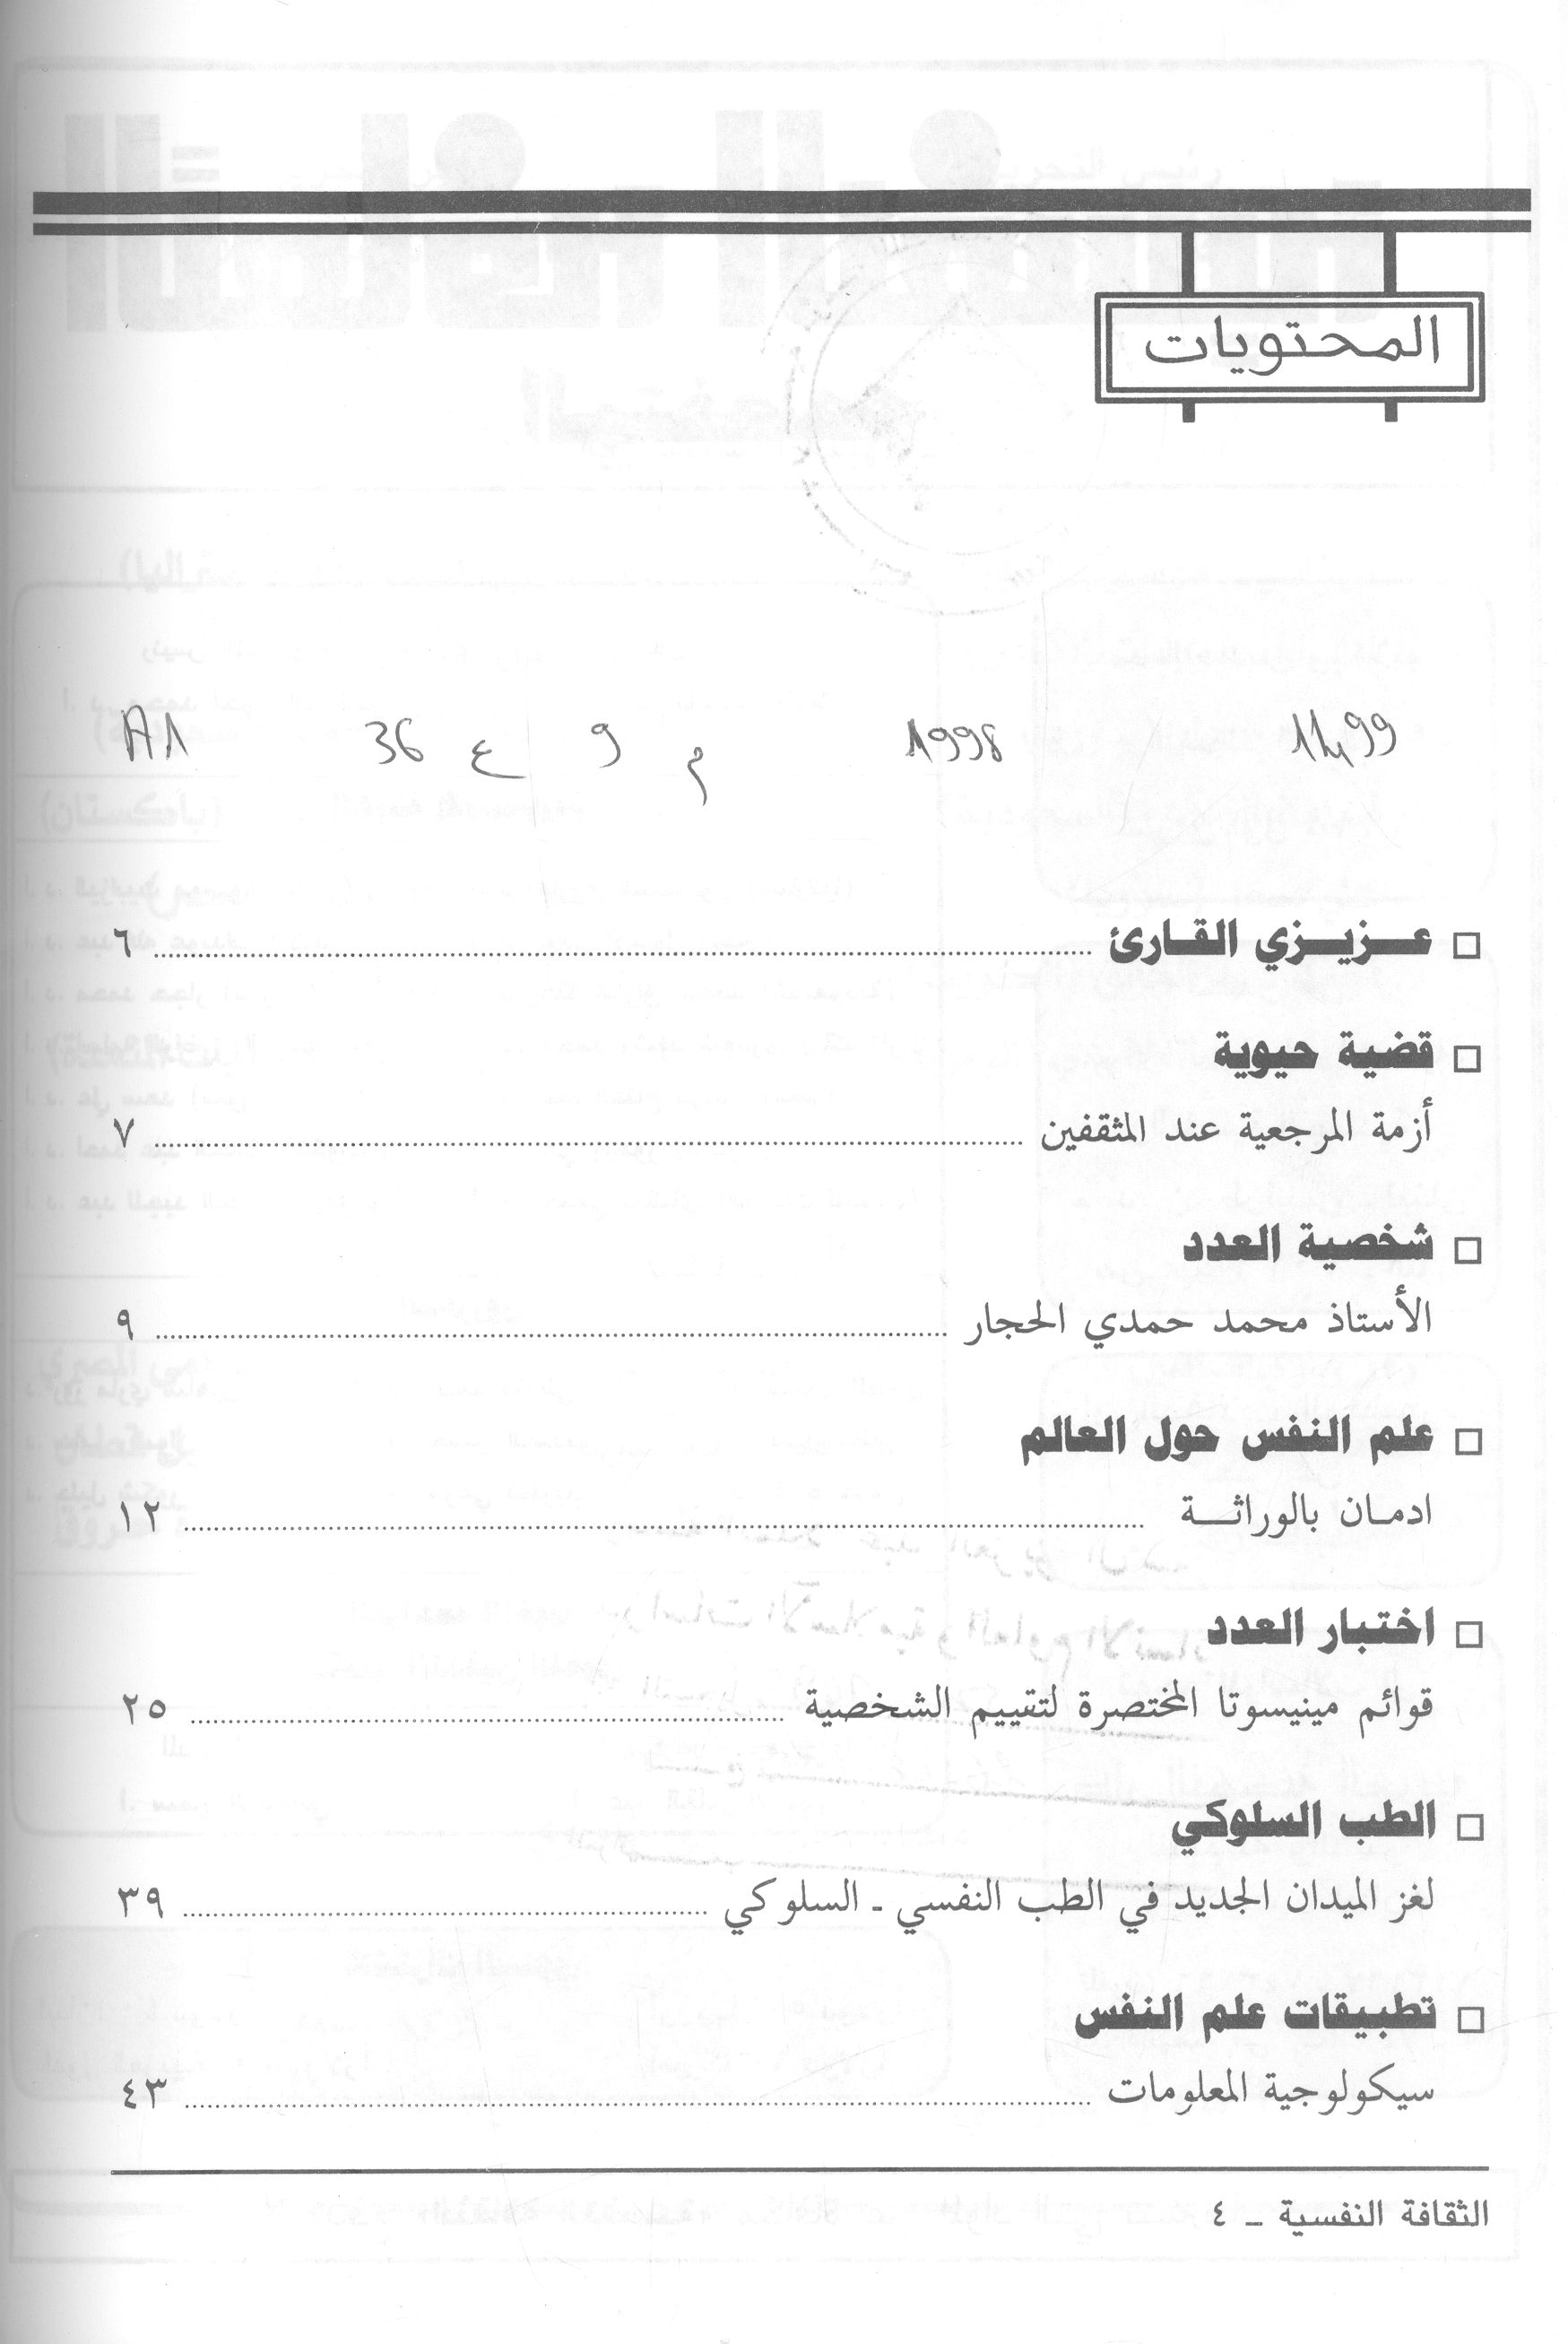 المحتويات
1499 1998 م 9 ع 36 A1
□ عـزيـزي القـارئ ........ ٦
□ قضية حيوية
أزمة المرجعية عند المثقفين ........ ٧
□ شخصية العدد
الأستاذ محمد حمدي الحجار ........ ٩
□ علم النفس حول العالم
ادمـان بالوراثــة ........ ١٢
□ اختبار العدد
قوائم مينيسوتا المختصرة لتقييم الشخصية ........ ٢٥
□ الطب السلوكي
لغز الميدان الجديد في الطب النفسي ـ السلوكي ........ ٣٩
□ تطبيقات علم النفس
سيكولوجية المعلومات ........ ٤٣
الثقافة النفسية ـ ٤